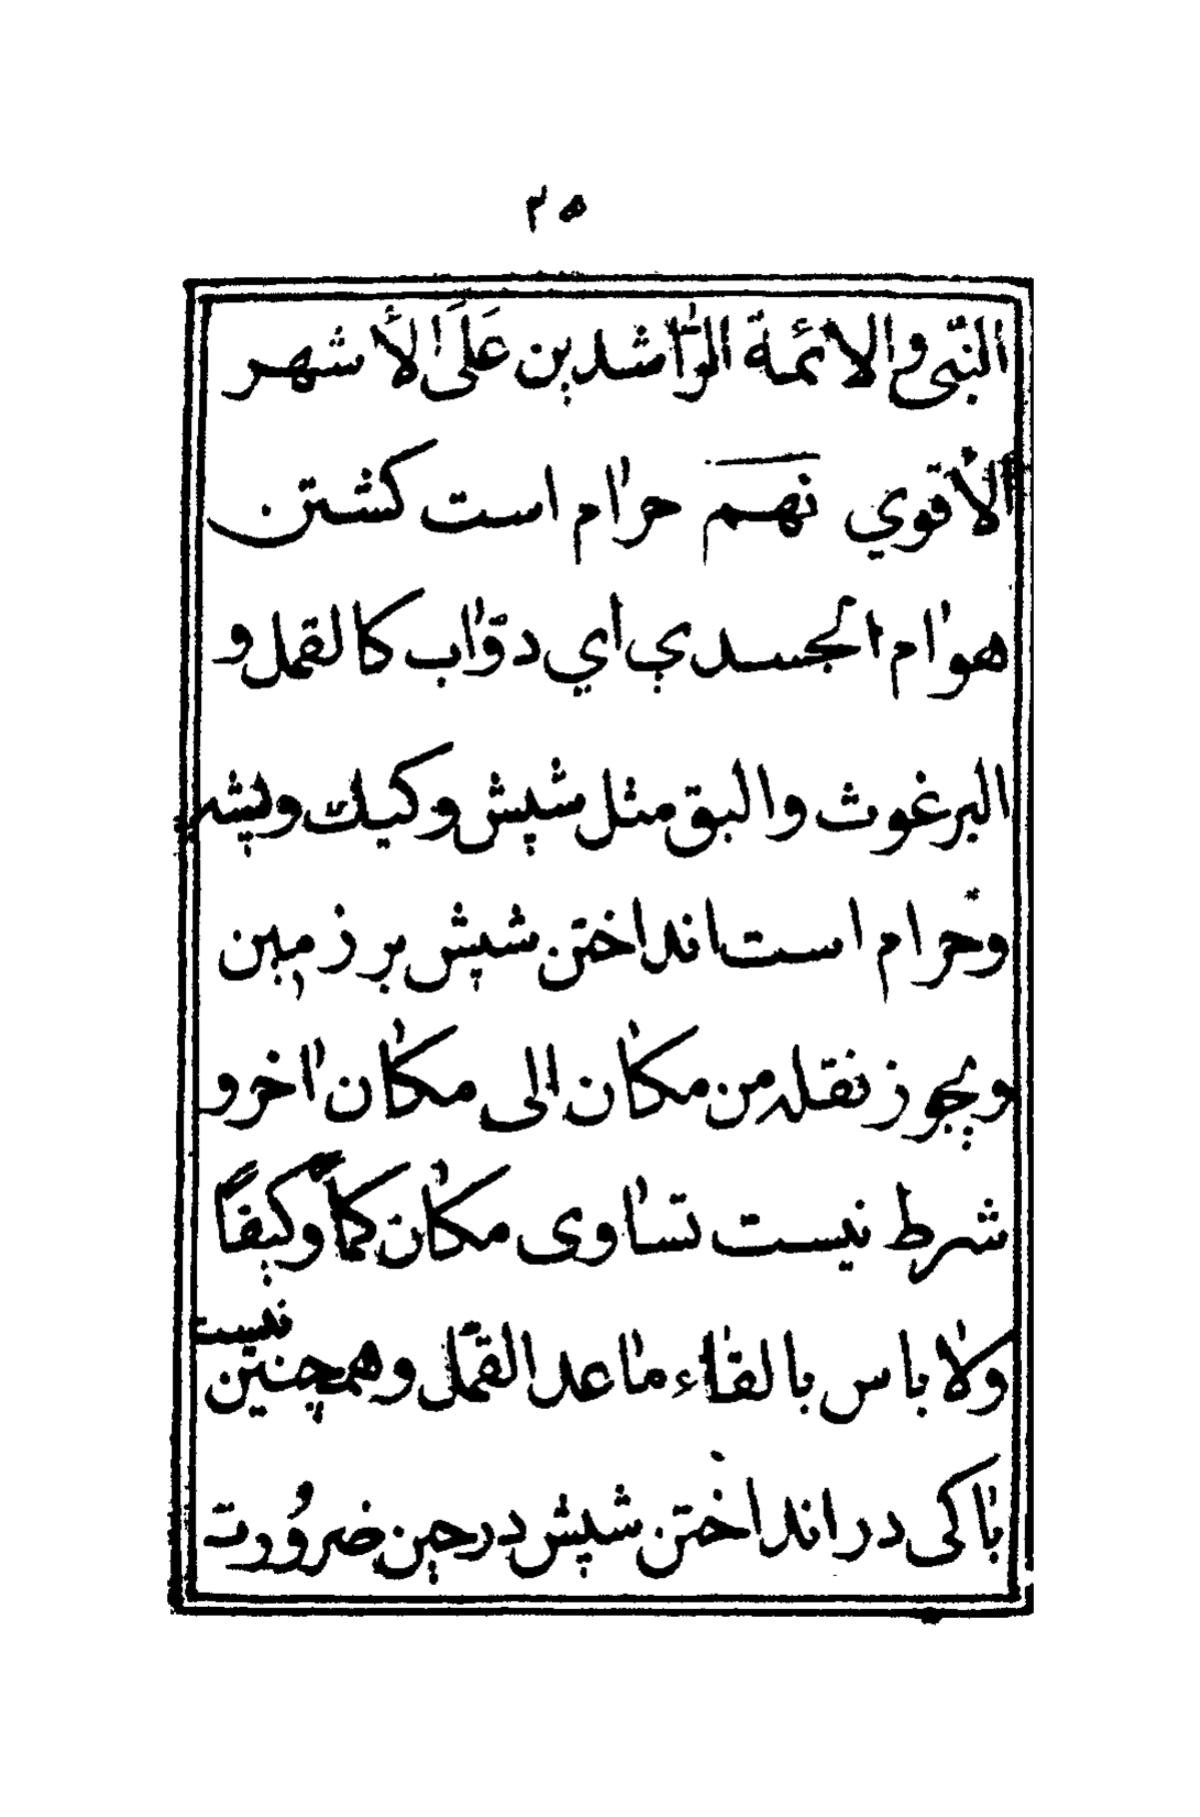 ٢٥
النّبی والائمة الرّاشدین عَلَی الأشهر
الأقوي نهم حرام است کشتن
هوام الجسدي اي دوّاب کالقمل و
البرغوث والبق مثل شپش وکیك وپشه
وحرام است انداختن شپش بر زمین
ویجوز نقله من مکان الی مکان اخر و
شرط نیست تساوی مکان کمّاً وکیفاً
ولا باس بالقاء ماعدا القمّل وهمچنین نیست
باکی در انداختن شپش در حین ضرورت